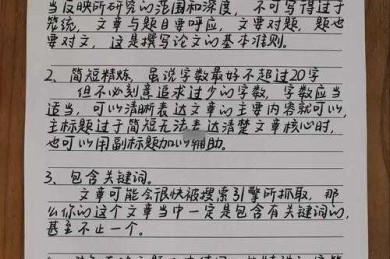 当反映所研究的范围和深度，不可写得过于
笼统，文章与题目要呼应，文要对题，题也
要对文，这是撰写论文的基本准则。
2、简短精炼，虽说字数最好不超过20字
但不必刻意追求过少的字数，字数应当
适当，可以清晰表达文章的主要内容就可以，
主标题过于简短无法表达清楚文章核心时，
也可以用副标题加以辅助。
3、包含关键词。
文章可能会很快被搜索引擎所抓取，那
么你的这个文章当中一定是包含有关键词的，
甚至不止一个。